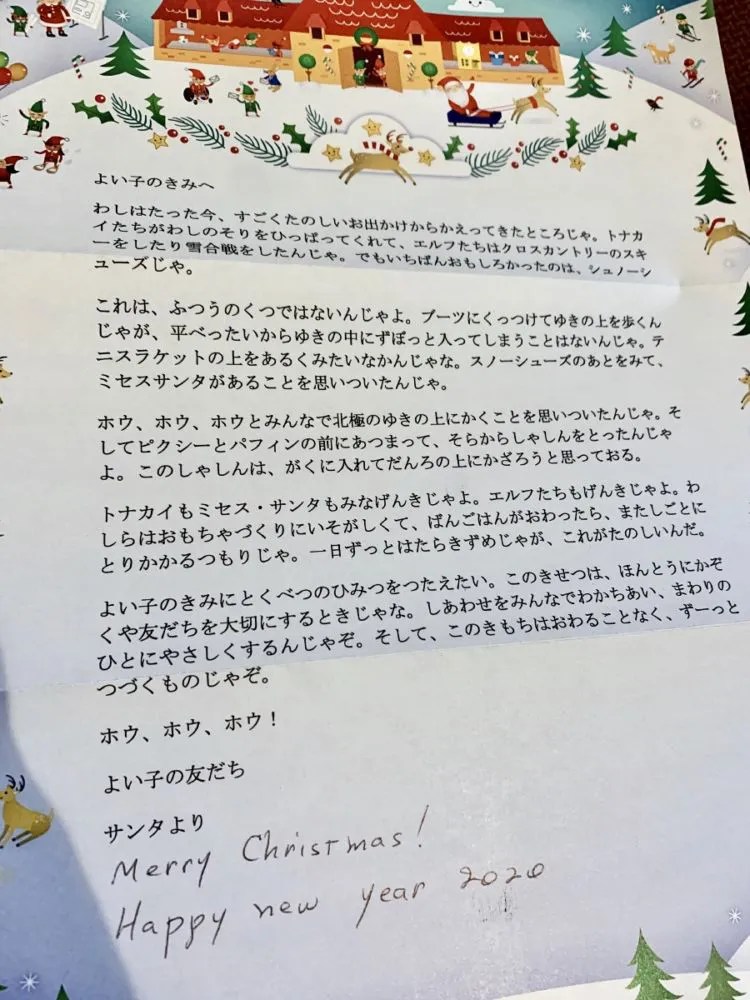 よい子のきみへ
わしはたった今、すごくたのしいお出かけからかえってきたところじゃ。トナカ
イたちがわしのそりをひっぱってくれて、エルフたちはクロスカントリーのスキ
ーをしたり雪合戦をしたんじゃ。でもいちばんおもしろかったのは、シュノーシ
ューズじゃ。
これは、ふつうのくつではないんじゃよ。ブーツにくっつけてゆきの上を歩くん
じゃが、平べったいからゆきの中にずぼっと入ってしまうことはないんじゃ。テ
ニスラケットの上をあるくみたいなかんじゃな。スノーシューズのあとをみて、
ミセスサンタがあることを思いついたんじゃ。
ホウ、ホウ、ホウとみんなで北極のゆきの上にかくことを思いついたんじゃ。そ
してピクシーとパフィンの前にあつまって、そらからしゃしんをとったんじゃ
よ。このしゃしんは、がくに入れてだんろの上にかざろうと思っておる。
トナカイもミセス・サンタもみなげんきじゃよ。エルフたちもげんきじゃよ。わ
しらはおもちゃづくりにいそがしくて、ばんごはんがおわったら、またしごとに
とりかかるつもりじゃ。一日ずっとはたらきずめじゃが、これがたのしいんだ。
よい子のきみにとくべつのひみつをつたえたい。このきせつは、ほんとうにかぞ
くや友だちを大切にするときじゃな。しあわせをみんなでわかちあい、まわりの
ひとにやさしくするんじゃぞ。そして、このきもちはおわることなく、ずーっと
つづくものじゃぞ。
ホウ、ホウ、ホウ！
よい子の友だち
サンタより
Merry Christmas!
Happy new year 2020